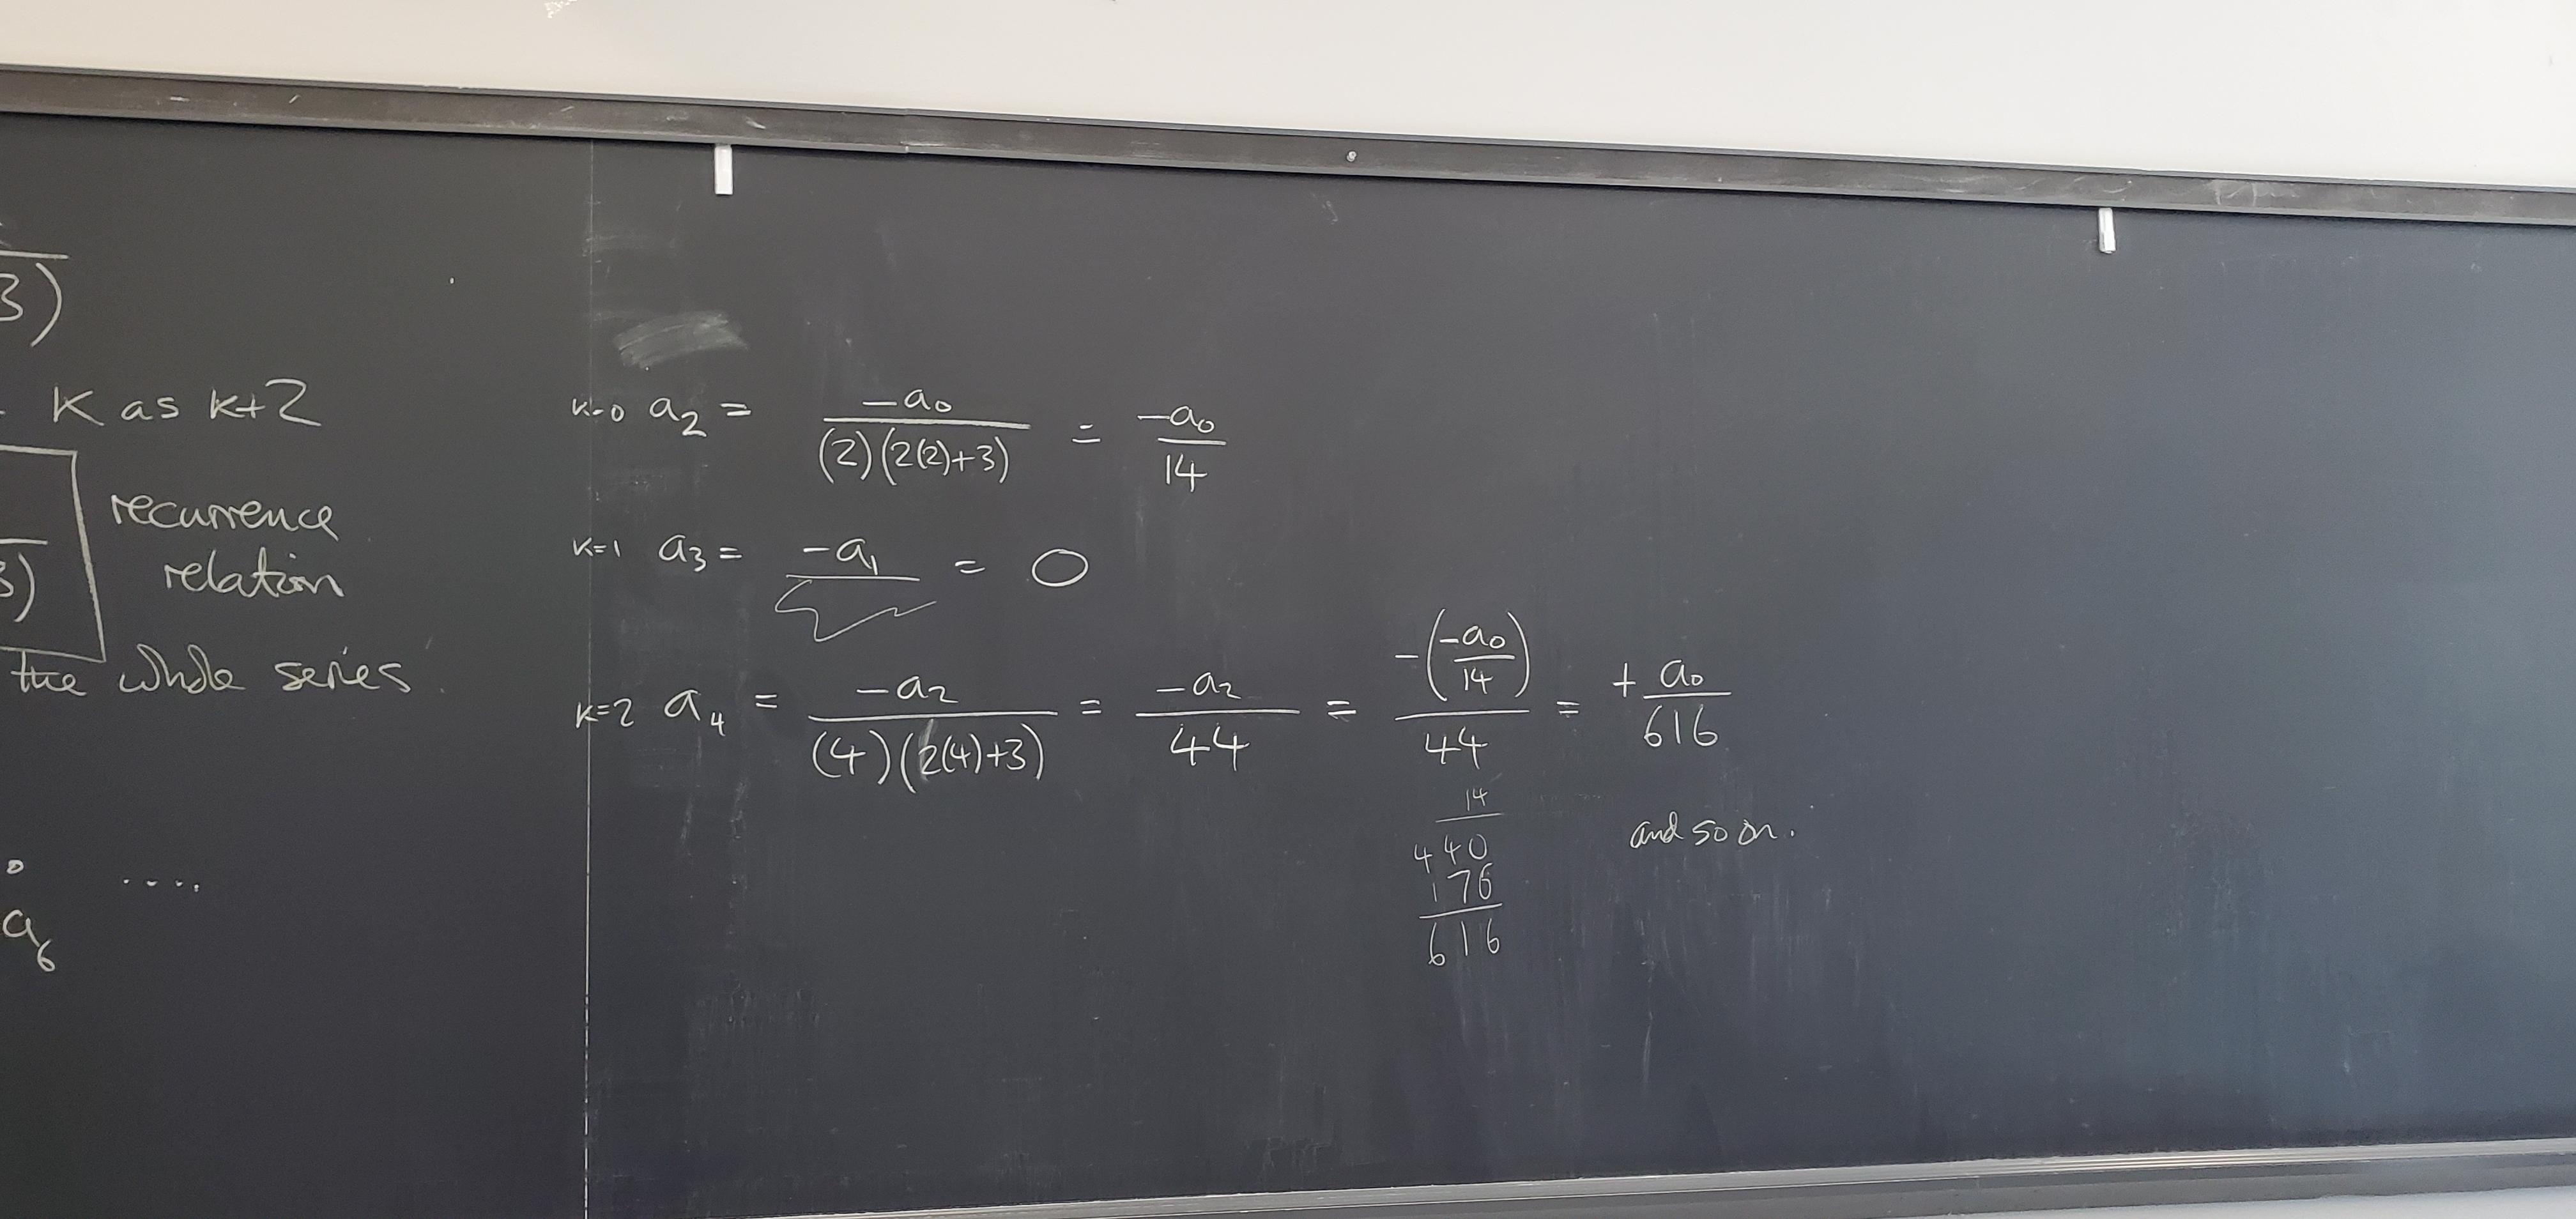 3)
K as k+2
recurrence
relation
3)
the whole series.
0 ....
a_6
k=0 a_2 = -a_0 / (2)(2(2)+3) = -a_0 / 14
k=1 a_3 = -a_1 / = 0
k=2 a_4 = -a_2 / (4)(2(4)+3) = -a_2 / 44 = -(-a_0 / 14) / 44 = + a_0 / 616
14
440
176
616
and so on.